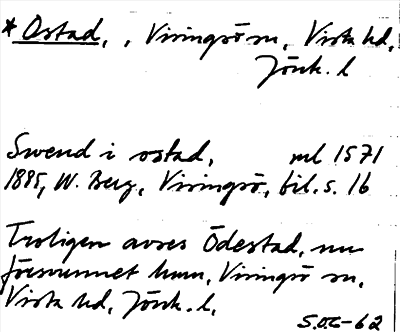 * Ostad, , Viringsö sn, Vista hd,
Jönk. l
Swend i ostad, ml 1571
1885, W. Berg, Viringsö, bil. s. 16
Troligen avses Ödestad, nu
försvunnet hmn, Viringsö sn,
Vista hd, Jönk. l,
S.O.C-62